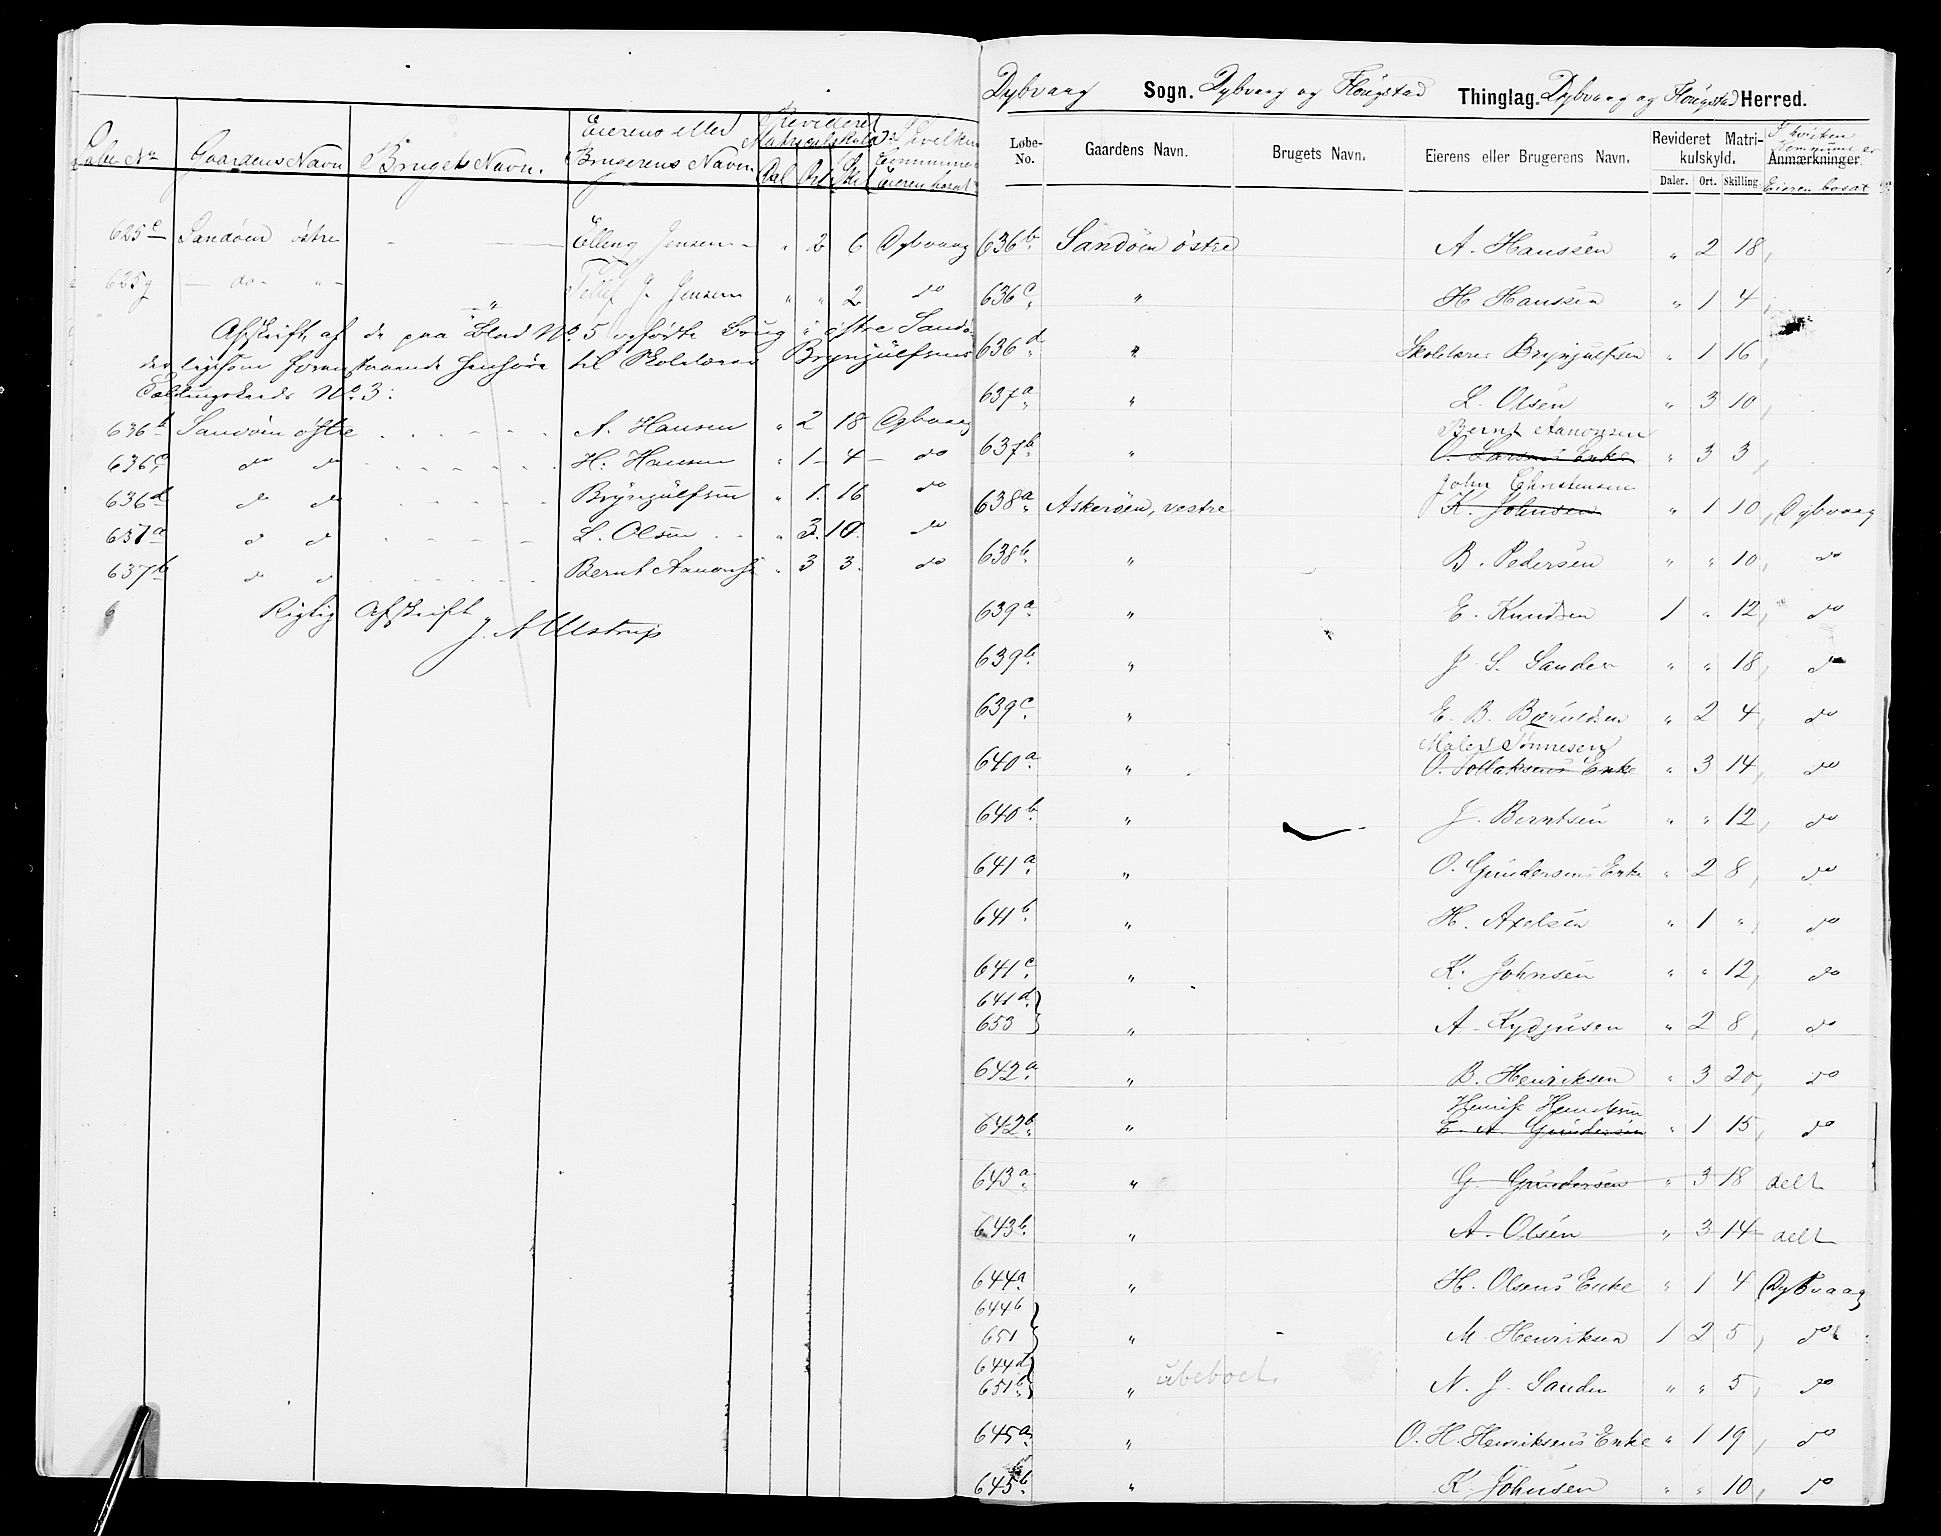 Løbe No Gaardens Navn Brugets Navn. Eierens eller Brugerens Navn Revideret Matrikulskyld Dal Ort Skl I hvilken Commune er Eieren bosat
625c Sandøen østre - - Elling Jensen - " 2 6 Dybvaag
625g - do - " - Tellef J. Jensen " " 2 do
Afskrift af de paa Blad No 5 opførte Brug i østre Sandø
der ligesom foranstaaende henhøre til Skolelærer Brynjulfsens
Tællingskreds No 3:
636b Sandøen østre A. Hansen " 2 18 Dybvaag
636c do do H. Hansen " 1 4 do
636d do do Brynjulfsen " 1 16 do
637a do do L. Olsen " 3 10 do
637b do do Bernt Aanonsen " 3 3 do
Rigtig Afskrift
J. A Ulstrup
6
Dybvaag Sogn. Dybvaag og Flougstad Thinglag. Dybvaag og Flougstad Herred.
Løbe-No. Gaardens Navn. Brugets Navn. Eierens eller Brugerens Navn. Revideret Matrikulskyld. Daler. Ort. Skilling. Anmærkninger. I hvilken Kommune er Eieren bosat
636b Sandøen østre A. Hanssen " 2 18,
636c " H Hanssen " 1 4,
636d " Skolelærer Brynjulfsen " 1 16,
637a " L. Olsen " 3 10,
Bernt Aanonsen
637b " O. Larsens Enke " 3 3,
John Christensen
638a Askerøen, vestre K. Johnsen " 1 10, Dybvaag
638b " B. Pedersen " " 10, do
639a " E. Knudsen 1 " 12, do
639b " J. S. Sanden " " 18, do
639c " E. B. Baruldsen " 2 4, do
Maler Tønnesen
640a " O. Tollaksens Enke " 3 14, do
640b " J. Berntsen " " 12, do
641a " O. Gundersens Enke " 2 8, do
641b " H. Axelsen " 1 ", do
641c " K. Johnsen " " 12, do
641d
653 " A. Kydjusen " 2 8, do
642a " B. Henriksen " 3 20, do
Henrik Hendtsen
642b " E. A. Gundersen " 1 15, do
643a " G. Gundersen " 3 18 delt
643b " A. Olsen " 3 14 delt
644a " H. Olsens Enke " 1 4 Dybvaag
644b
651 " M. Henriksen 1 2 5, do
644d
651b " ubeboet. N. J. Sanden " " 5, do
645a " O. H. Henriksens Enke " 1 19, do
645b " K. Johnsen " " 10, do